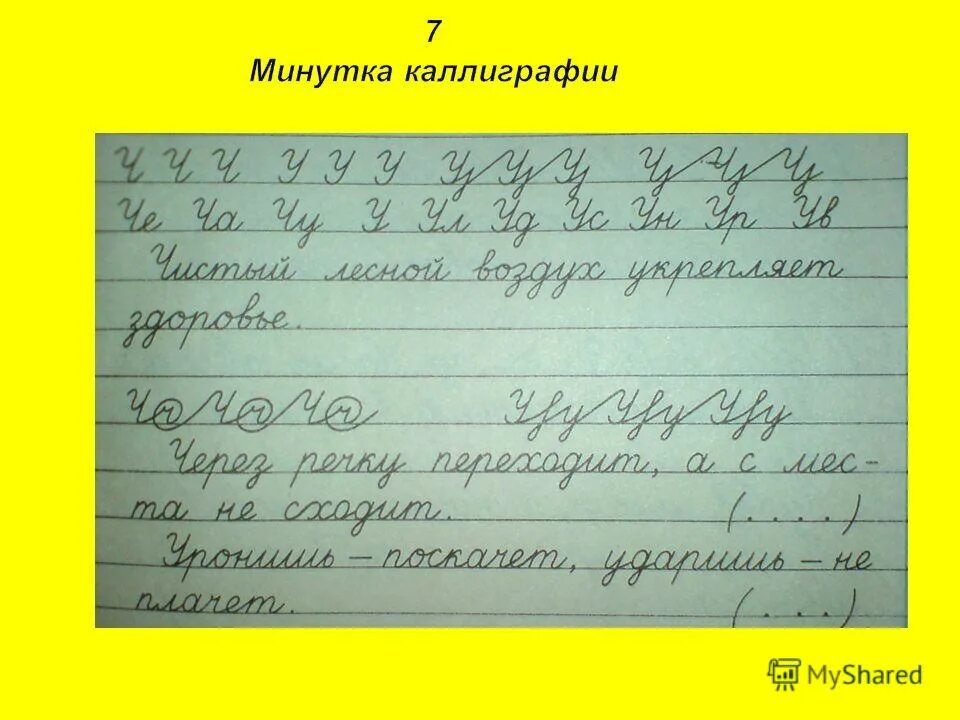 7
Минутка каллиграфии
Ч Ч Ч У У У Уу Уу Уу Чу Чу Чу
Че Ча Чу У Ул Уд Ус Ун Ур Ув
Чистый лесной воздух укрепляет
здоровье.
Чч Чч Чч
Через речку переходит, а с мес-
та не сходит. (. . . .)
Уронишь – поскачет, ударишь – не
плачет. (. . .)
MyShared